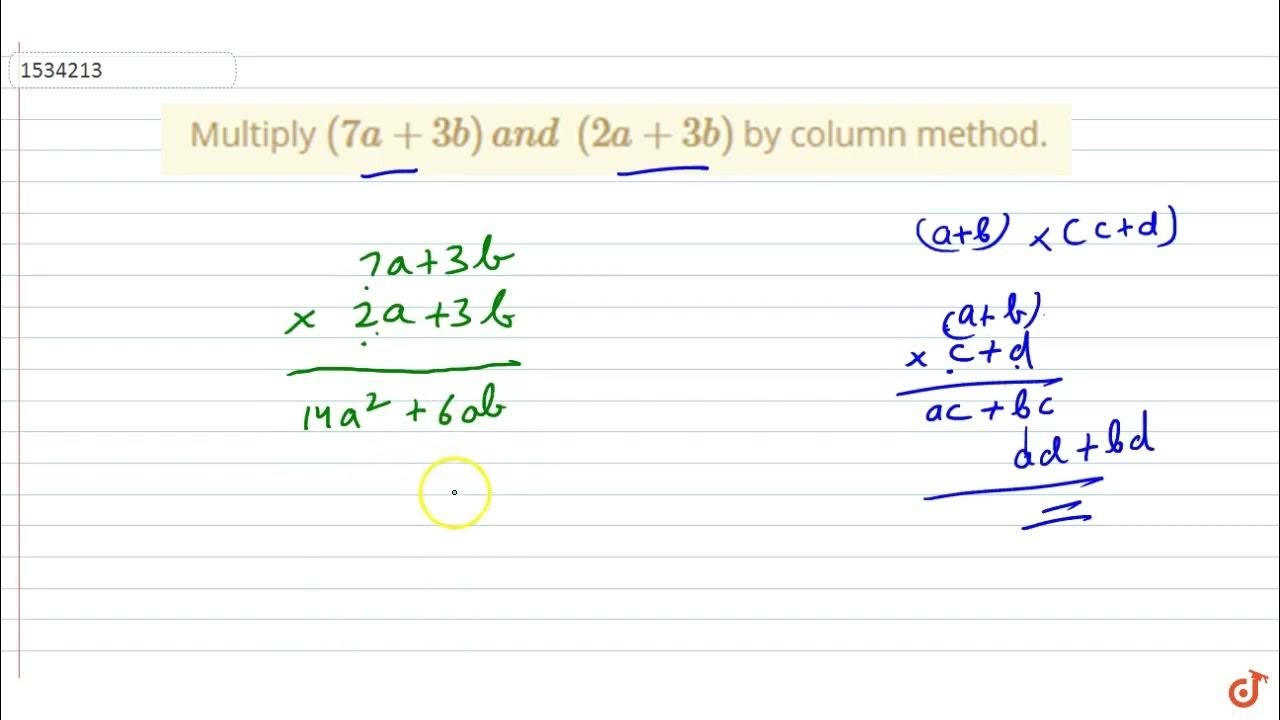 1534213
Multiply (7a + 3b) and (2a + 3b) by column method.
7a+3b
× 2a+3b
14a² + 6ab
(a+b) × (c+d)
(a+b)
× c+d
ac + bc
ad + bd